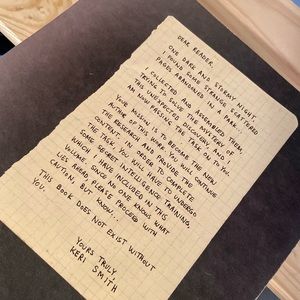 DEAR READER,
ONE DARK AND STORMY NIGHT,
I FOUND SOME STRANGE SCATTERED
PAGES ABANDONED IN A PARK.
I COLLECTED AND ASSEMBLED THEM,
TRYING TO SOLVE THE MYSTERY OF
THIS UNEXPECTED DISCOVERY, AND I
AM NOW PASSING THE TASK ON TO YOU.
YOUR MISSION IS TO BECOME THE NEW
AUTHOR OF THIS WORK. YOU WILL CONTINUE
THE RESEARCH AND PROVIDE THE
CONTENT. IN ORDER TO COMPLETE
THE TASK YOU WILL HAVE TO UNDERGO
SOME SECRET INTELLIGENCE TRAINING,
WHICH I HAVE INCLUDED IN THIS
VOLUME. SINCE NO ONE KNOWS WHAT
LIES AHEAD, PLEASE PROCEED WITH
CAUTION. BUT KNOW...
THIS BOOK DOES NOT EXIST WITHOUT
YOU.
YOURS TRULY,
KERI SMITH